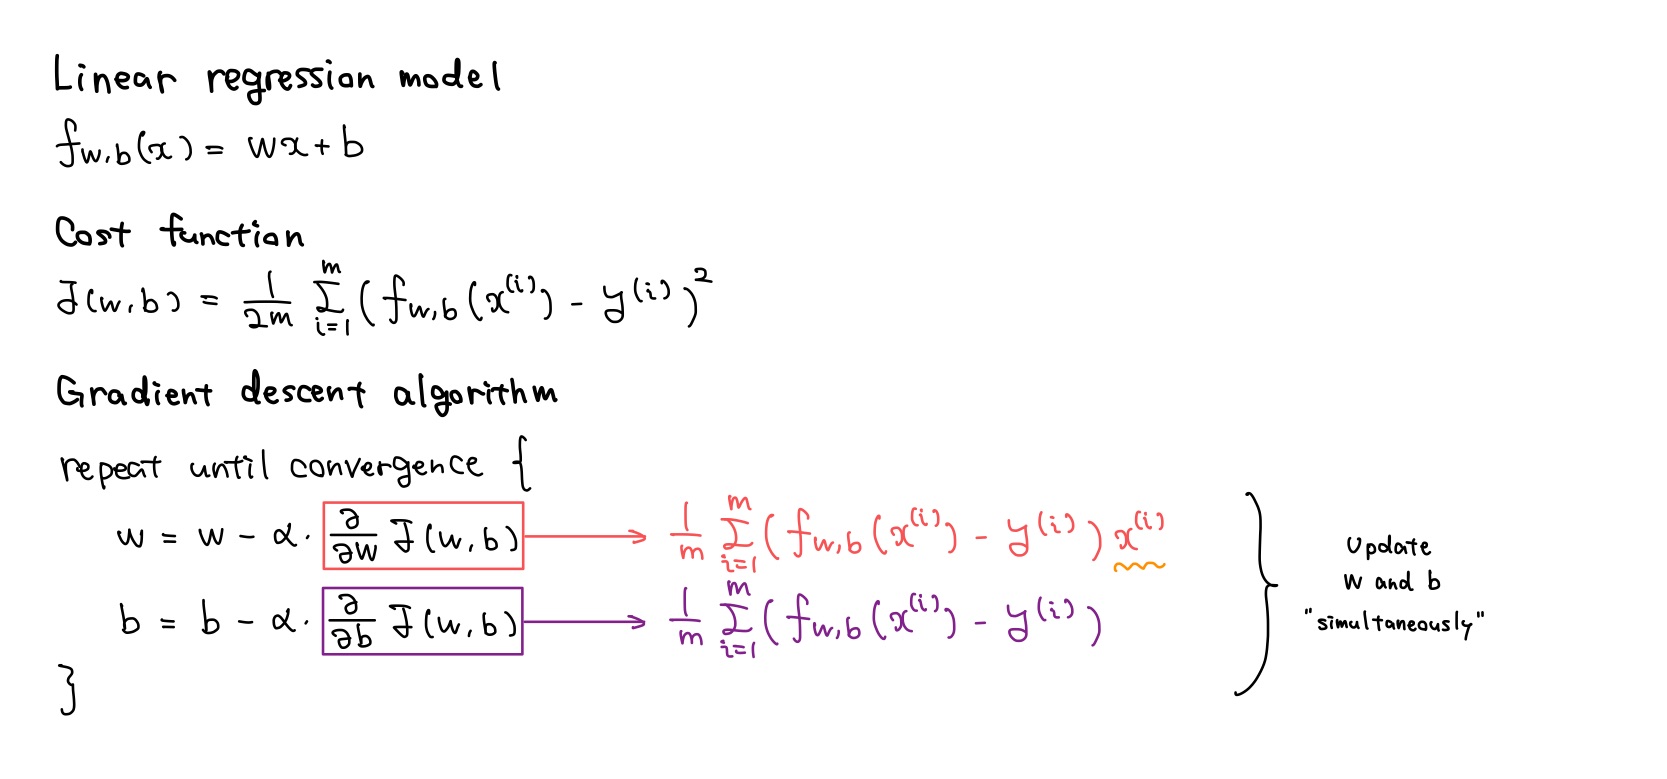 Linear regression model
f_{w,b}(x) = wx + b
Cost function
J(w,b) = \frac{1}{2m} \sum_{i=1}^{m} (f_{w,b}(x^{(i)}) - y^{(i)})^2
Gradient descent algorithm
repeat until convergence {
w = w - α · \frac{∂}{∂w} J(w,b) → \frac{1}{m} \sum_{i=1}^{m} (f_{w,b}(x^{(i)}) - y^{(i)}) x^{(i)}
b = b - α · \frac{∂}{∂b} J(w,b) → \frac{1}{m} \sum_{i=1}^{m} (f_{w,b}(x^{(i)}) - y^{(i)})
}
Update
w and b
"simultaneously"